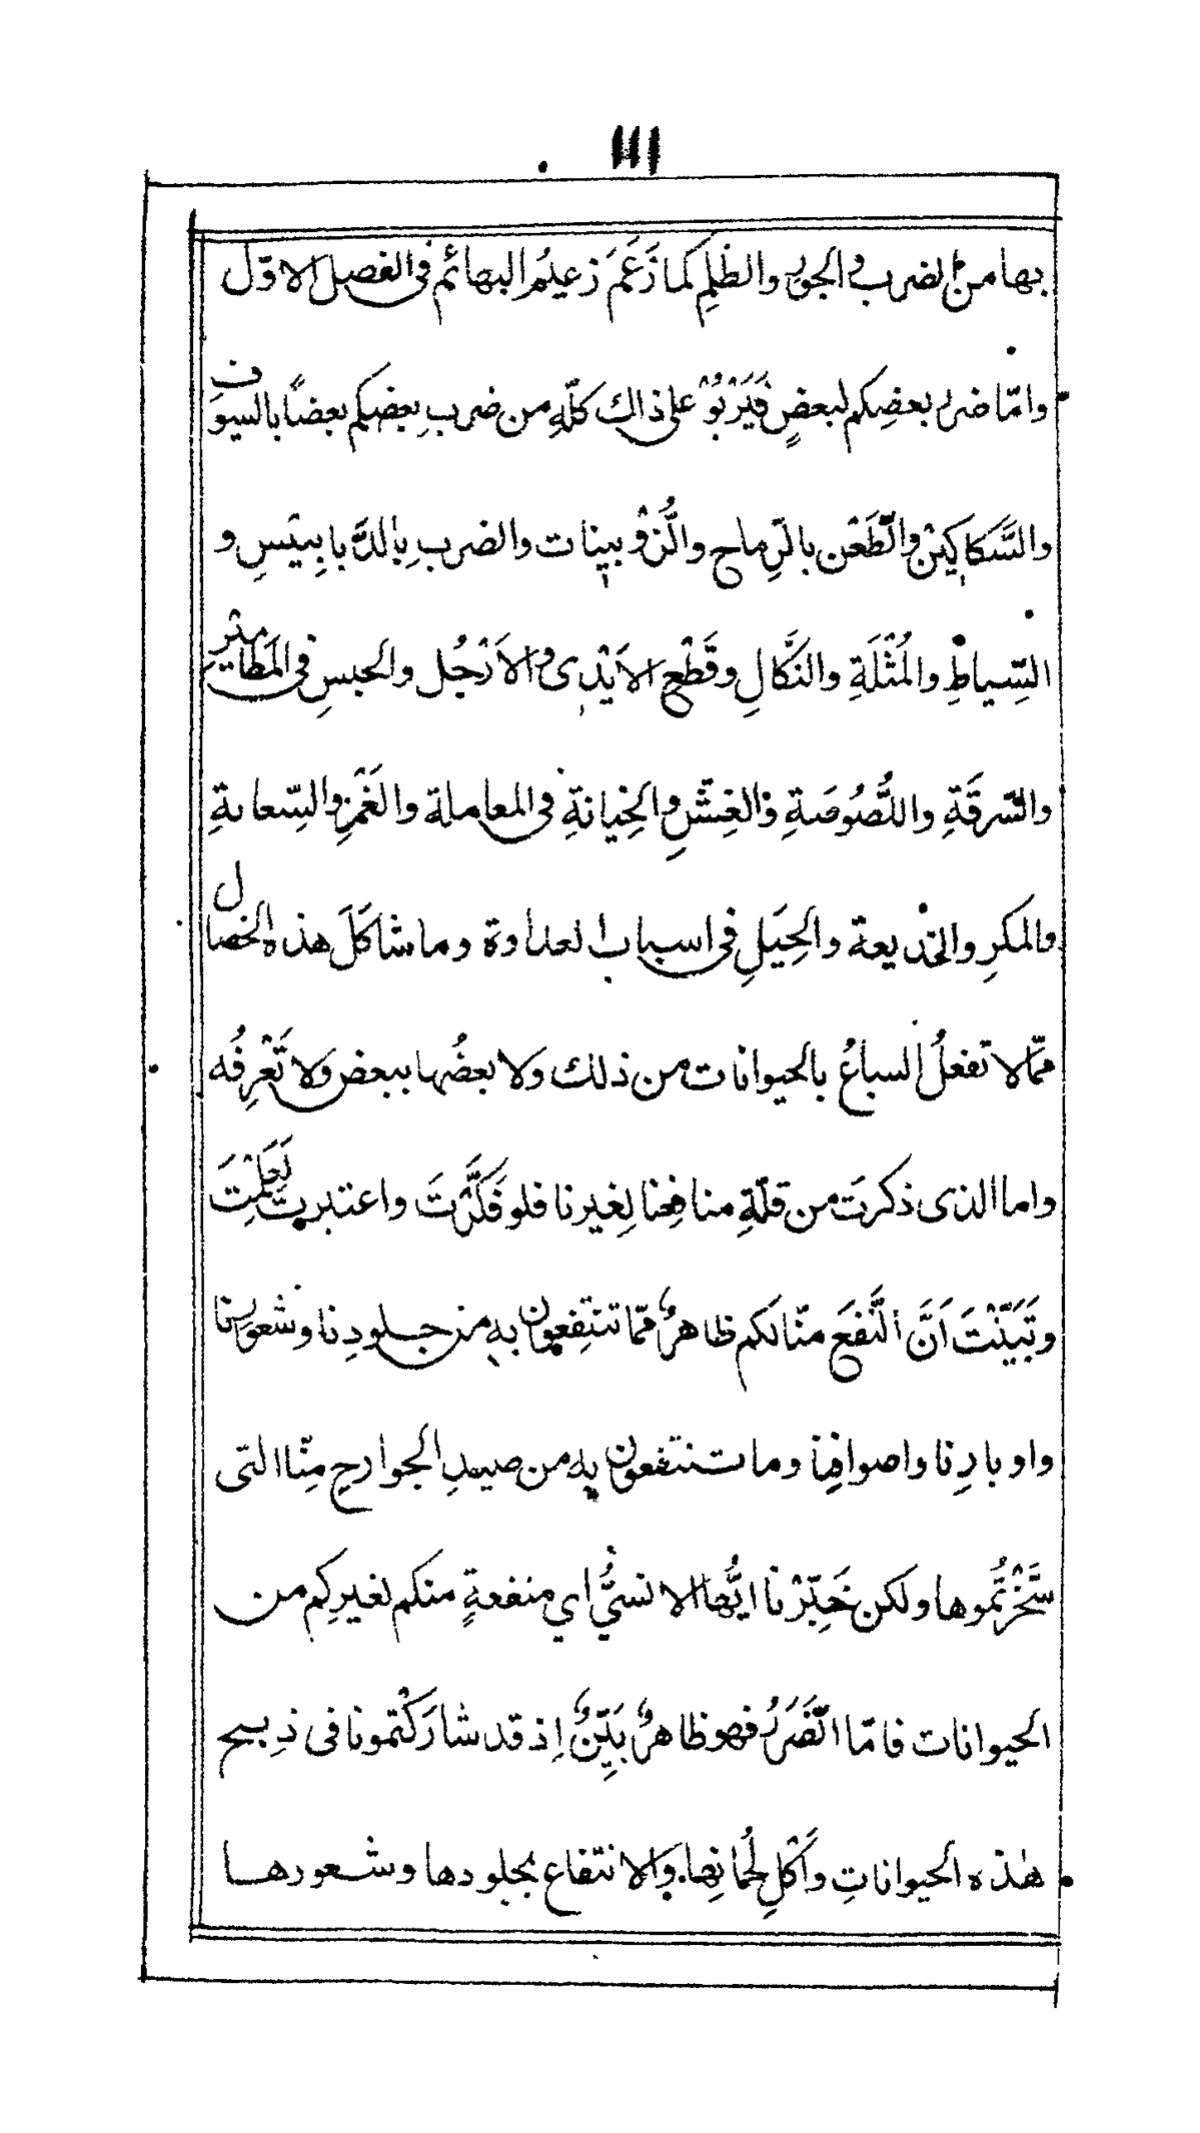 ١١١
بها من الضرب و الجور والظلمِ كما زَعَمَ زعيمُ البهائم فى الفصل الاوّل
وامّا ضرر بعضِكم لبعضٍ فَيَرْبُوْ على ذالك كلّهِ من ضربِ بعضكم بعضًا بالسيوف
والسَّكاكِيْن والطَّعْن بالرِّماح والزُّوْبينات والضربِ بالدَّبابِيسِ و
السِّياطِ والمُثْلَةِ والنَّكالِ وقَطْعِ الايْدِى والاَرْجُل والحبسِ فى المَطامِيْرِ
والسَّرِقَةِ واللُّصُوصَةِ والغِشِّ والخِيانةِ فى المعاملة والغَمْزِ والسِّعايةِ
والمكرِ والخديعة والحِيَلِ فى اسباب العداوة وما شاكَلَ هذه الخصال
ممّا لا تفعلُ السباعُ بالحيوانات من ذلك وَلا بعضُها ببعض وَلا تَعْرِفُه
واما الذى ذكرتَ من قلّةِ منافِعِنا لِغيرنا فلو فَكَّرْتَ واعتبرت لَعَلِمْتَ
وتَبَيَّنْتَ اَنَّ النَّفعَ منّا لكم ظاهرٌ ممّا تنتفِعون به من جلودِنا وشعورنا
واوبارِنا واصوافِنا وما تنتفعون بِه من صيدِ الجوارحِ مِنّا التى
سَّخَرْتُموها ولكن خَبِّرْنا ايُّها الانسيُّ اي منفعةٍ منكم لغيرِكم من
الحيوانات فامّا الضَّرَرُ فهو ظاهرٌ بَيِّنٌ اِذ قد شارَكْتمونا فى ذِبح
هٰذه الحيواناتِ وأَكْلِ لُحمانِها والانتفاع بجلودها وشعورها